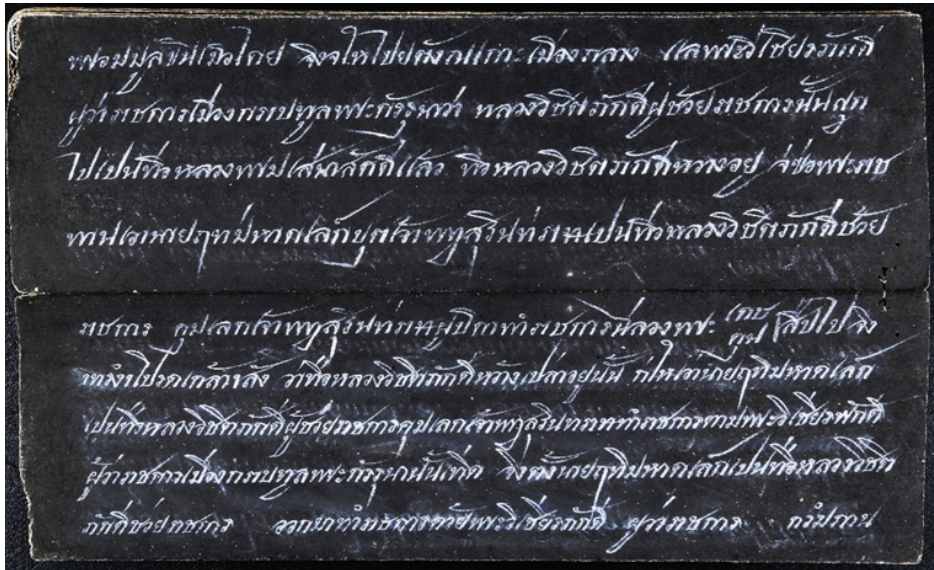 พอมมูลจีนเจ๊วไทย จึงจให้ไปยตังกแกะเมืองถลาง แลพระวิเชียรภักดี
ผู้ว่าราชการเมืองกราบทูลพระกรุณาว่า หลวงวิชิตภักดีผู้ช่วยราชการนั้นถูก
ไปเป็นที่หลวงพรมเสนาสักดีแล้ว ที่หลวงวิชิตภักดีหว่างอยู่ จ่ขอพระราช
ทานเอานายฤทมหาดเล็กบุตเจ้าพญาสุรินทราชาเปนที่หลวงวิชิตภักดีช่วย
ราชการ คุมเลกเจ้าพญาสุรินทราชาผู้บิดาทำราชการฉลองพระ เดช คุน สืบไป จึง
ทรงโปรดเกล้าฯสั่ง ว่าที่หลวงวิชิตภักดีหว้างเปล่าอยู่นั้น ก็ให้เอานายฤทมหาดเล็ก
เปนที่หลวงวิชิตภักดีผู้ช่วยราชการคุมเลกเจ้าพญาสุรินทราชาทำราชการตามพระวิเชียรภักดี
ผู้ว่าราชการเมืองกราบทูลพระกรุณานั้นเถิด จึ่งตั้งนายฤทมหาดเล็กเปนที่หลวงวิชิต
ภักดีช่วยราชการ ออกมาทำราชการด้วยพระวิเชียรภักดี ผู้ว่าราชการ